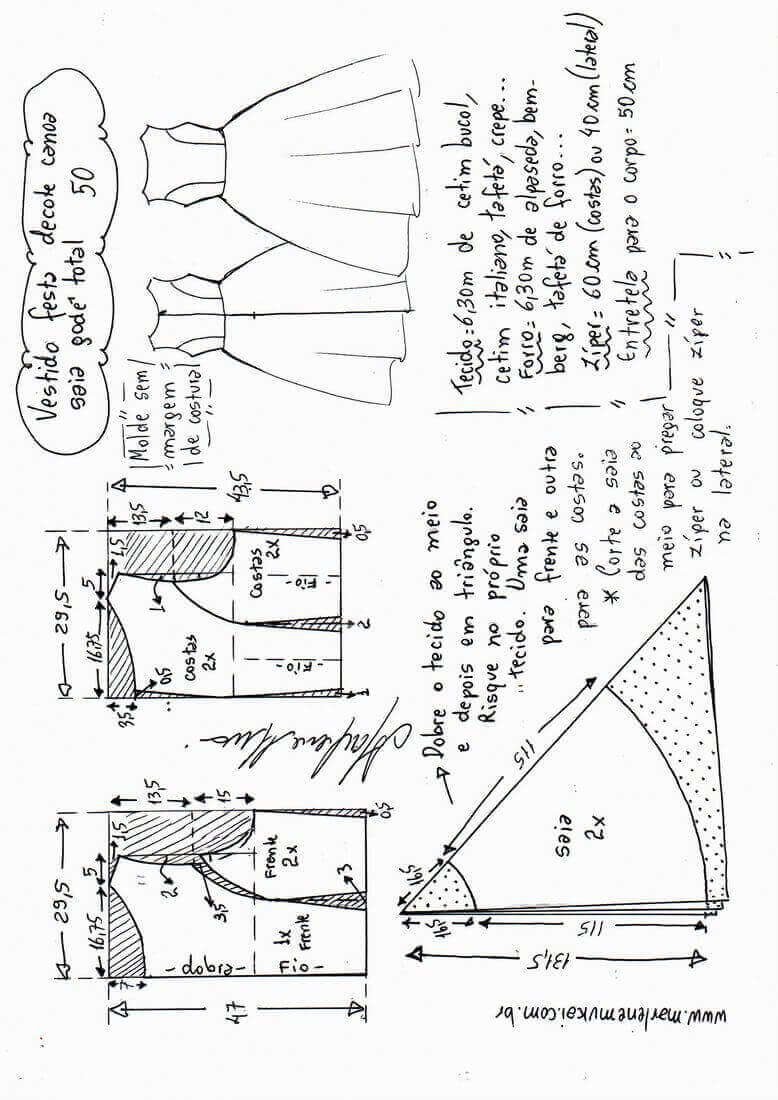 Vestido festa decote canoa
saia godê total 50
Molde sem
margem
de costura
Tecido = 6,30m de cetim bucol,
cetim italiano, tafetá, crepe...
Forro = 6,30m de alpaseda, bem-
berg, tafetá de forro...
Zíper = 60cm (costas) ou 40cm (lateral)
Entretela para o corpo = 50cm
29,5
16,75
5
1,5
13,5
12
43,5
3,5
0,5
1
Costas
2x
Costas
2x
-Fio-
-Fio-
1
2
0,5
Marlene Mukai
29,5
16,75
5
1,5
13,5
15
47
7
2
3,5
3
0,5
Frente
2x
1x
Frente
-Fio-
-dobra-
Dobre o tecido ao meio
e depois em triângulo.
Risque no próprio
tecido. Uma saia
para frente e outra
para as costas.
* Corte a saia
das costas ao
meio para pregar
zíper ou coloque zíper
na lateral.
16,5
115
16,5
115
131,5
saia
2x
www.marlenemukai.com.br